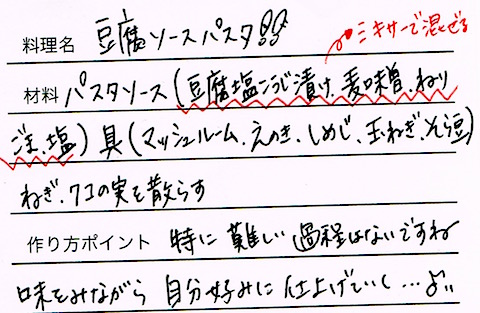 料理名 豆腐ソースパスタ!!
ミキサーで混ぜる
材料 パスタソース(豆腐塩こうじ漬け、麦味噌、ねり
ごま、塩)具(マッシュルーム、えのき、しめじ、玉ねぎ、そら豆)
ねぎ、クコの実を散らす
作り方ポイント 特に難しい過程はないですね
味をみながら自分好みに仕上げていく…